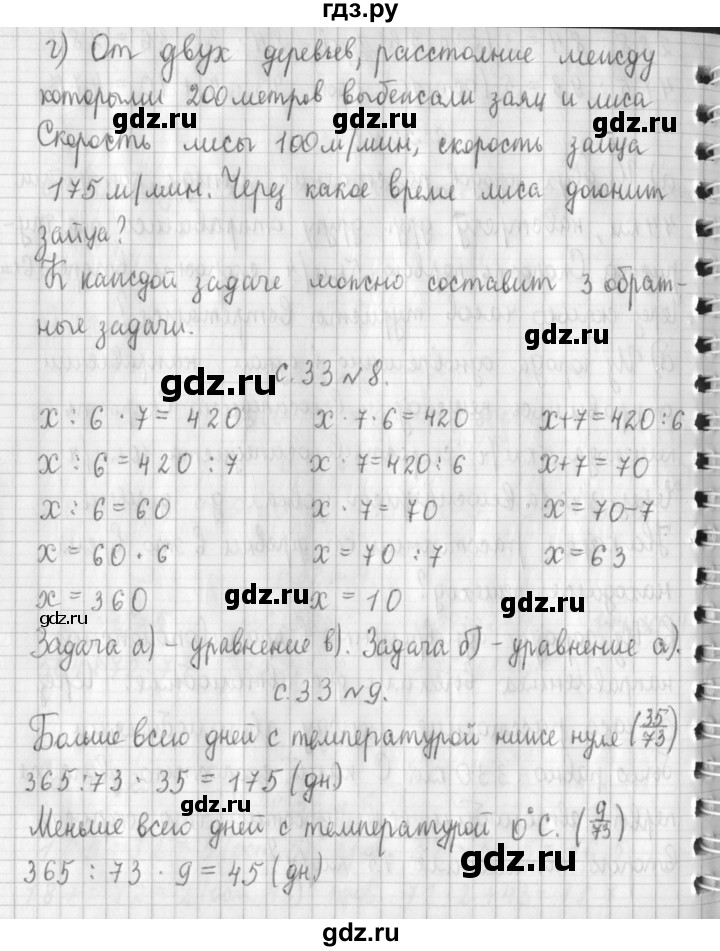 гдз.ру
г) От двух деревьев, расстояние между
которыми 200 метров выбежали заяц и лиса
gdz.ru gdz.ru
Скорость лисы 100 м/мин, скорость зайца
175 м/мин. Через какое время лиса догонит
зайца?
К каждой задаче можно составит 3 обрат-
ные задачи.
gdz.ru
gdz.ru
с.33 №8.
x : 6 · 7 = 420 x · 7 · 6 = 420 x+7=420:6
x : 6 = 420 : 7 x · 7=420:6 x+7=70
x : 6 = 60 x · 7 = 70 x=70-7
x = 60 · 6 x = 70 : 7 x=63
x = 360 x = 10
gdz.ru gdz.ru gdz.ru
Задача а) – уравнение в). Задача б) – уравнение а).
с.33 №9.
Больше всего дней с температурой ниже нуле (35/73)
365:73 · 35 = 175 (дн)
gdz.ru
Меньше всего дней с температурой 0°С. (9/73)
gdz.ru
365 : 73 · 9 = 45 (дн)